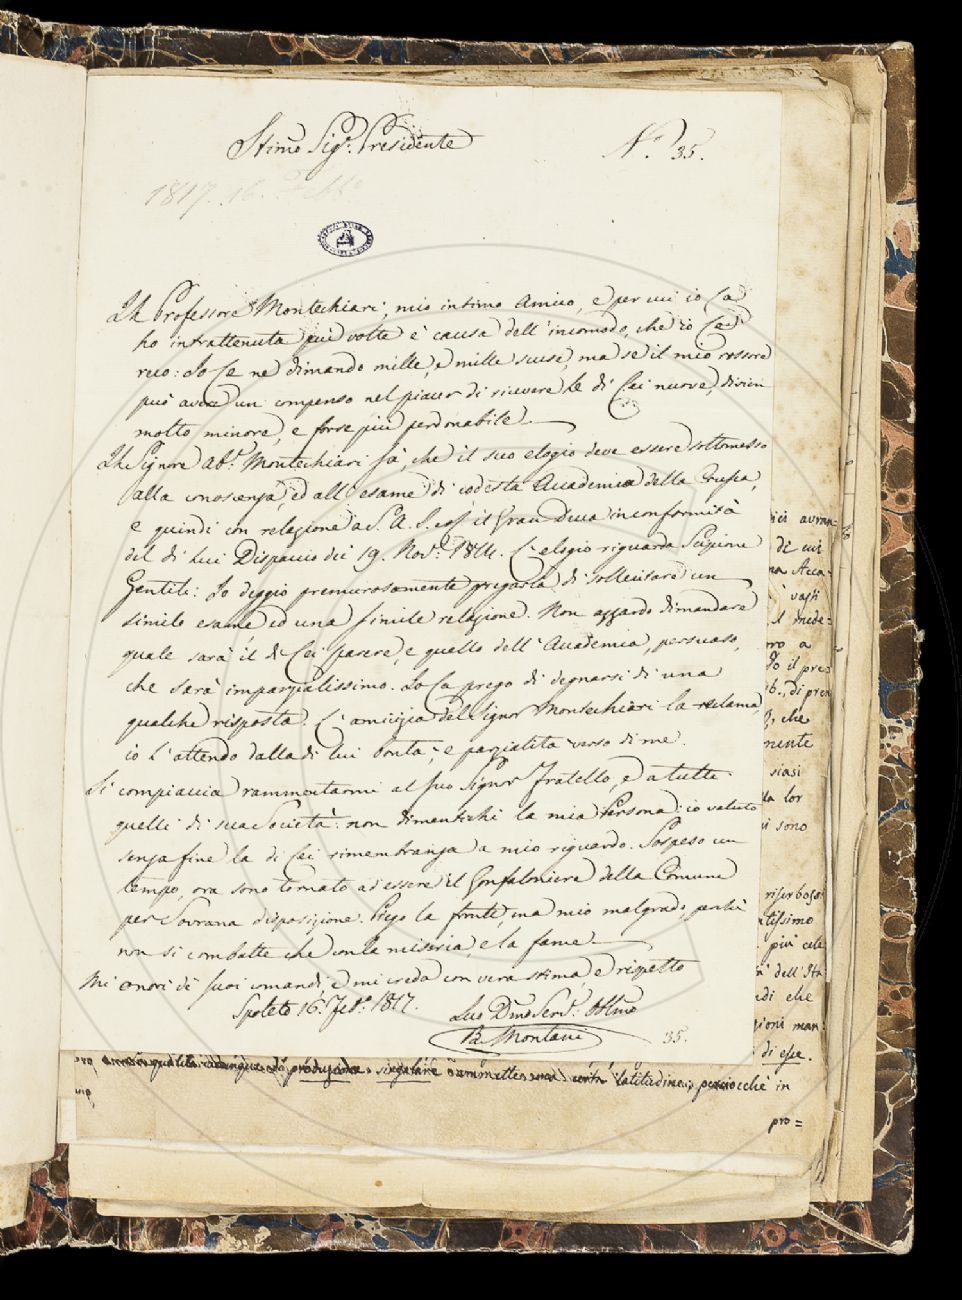 Stimo Sigr. Presidente
N.° 35.
1817. 16. Febb°
Il Professore Montechiari, mio intimo Amico, e per cui io La
ho intrattenuta più volte è causa dell'incomodo, che io Le
reco: Io Le ne dimando mille, e mille scuse, ma se il mio rossore
può avere un compenso nel piacer di ricevere le di Lei nuove,
molto minore, e forse più perdonabile.
Il Signore Ab.e Montechiari sà, che il suo elogio deve essere sottomesso
alla conoscenza, ed all'esame di codesta Accademia della Crusca,
e quindi con relazione a S. A. I. il Gran Duca in conformità
del di Lui Dispaccio dei 19. Nov.e L'elogio riguarda Scipione
Gentili: Io deggio premurosamente pregarla di sollecitare un
simile esame, ed una simile relazione. Non azzardo dimandare
quale sarà il di Lei parere, e quello dell'Accademia, persuaso,
che sarà imparzialissimo. Io La prego di degnarsi di una
qualche risposta. L'amicizia del Signor Montechiari la reclama,
io l'attendo dalla di lui bontà, e parzialità verso di me.
Si compiaccia rammentarmi al suo Signor Fratello, e a tutti
quelli di sua Società: non dimentichi la mia Persona: io valuto
senza fine la di Lei rimembranza a mio riguardo. Sospeso un
tempo, ora sono tornato ad essere il Gonfaloniere della Comune
per Sovrana disposizione. Piego la fronte, ma mio malgrado, perchè
non si combatte che con la miseria, e la fame.
Mi onori di suoi comandi, e mi creda con vera stima, e rispetto
Spoleto 16. Feb.° 1817.
Suo Dmo Serv.e Obblmo
Montani
35.
avran-
di cui
na Acca-
vasti
mede=
ro a
il pre=
di pren
che
mente
siasi
la lor
i sono
più cele
dell'Ita
edi che
gioni man=
di esse.
qualità latitudine; perciocchè in
pro=